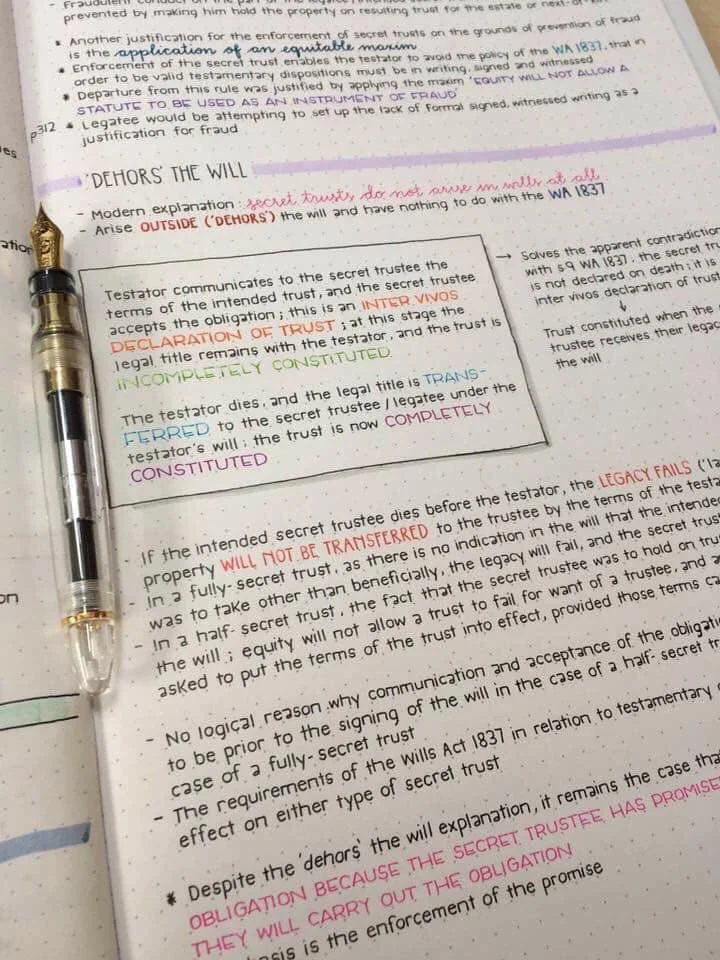 - Fraudulent conduct on the part of the legatee
prevented by making him hold the property on resulting trust for the estate or next-of-kin
* Another justification for the enforcement of secret trusts on the grounds of prevention of fraud
is the application of an equitable maxim
* Enforcement of the secret trust enables the testator to avoid the policy of the WA 1837, that in
order to be valid testamentary dispositions must be in writing, signed and witnessed
* Departure from this rule was justified by applying the maxim 'EQUITY WILL NOT ALLOW A
STATUTE TO BE USED AS AN INSTRUMENT OF FRAUD'
p312 * Legatee would be attempting to set up the lack of formal signed, witnessed writing as a
justification for fraud
'DEHORS' THE WILL
- Modern explanation: secret trusts do not arise in wills at all
- Arise OUTSIDE ('DEHORS') the will and have nothing to do with the WA 1837
Testator communicates to the secret trustee the
terms of the intended trust, and the secret trustee
accepts the obligation; this is an INTER VIVOS
DECLARATION OF TRUST; at this stage the
legal title remains with the testator, and the trust is
INCOMPLETELY CONSTITUTED.
The testator dies, and the legal title is TRANS-
FERRED to the secret trustee/legatee under the
testator's will; the trust is now COMPLETELY
CONSTITUTED
→ Solves the apparent contradiction
with s9 WA 1837. the secret tru
is not declared on death; it is
inter vivos declaration of trust
↓
Trust constituted when the
trustee receives their legac
the will
- If the intended secret trustee dies before the testator, the LEGACY FAILS ('la
property WILL NOT BE TRANSFERRED to the trustee by the terms of the testa
- In a fully-secret trust, as there is no indication in the will that the intende
was to take other than beneficially, the legacy will fail, and the secret trust
- In a half-secret trust, the fact that the secret trustee was to hold on tru
the will; equity will not allow a trust to fail for want of a trustee, and a
asked to put the terms of the trust into effect, provided those terms ca
- No logical reason why communication and acceptance of the obligati
to be prior to the signing of the will in the case of a half-secret tr
case of a fully-secret trust
- The requirements of the Wills Act 1837 in relation to testamentary
effect on either type of secret trust
* Despite the 'dehors' the will explanation, it remains the case tha
OBLIGATION BECAUSE THE SECRET TRUSTEE HAS PROMISE
THEY WILL CARRY OUT THE OBLIGATION
is the enforcement of the promise